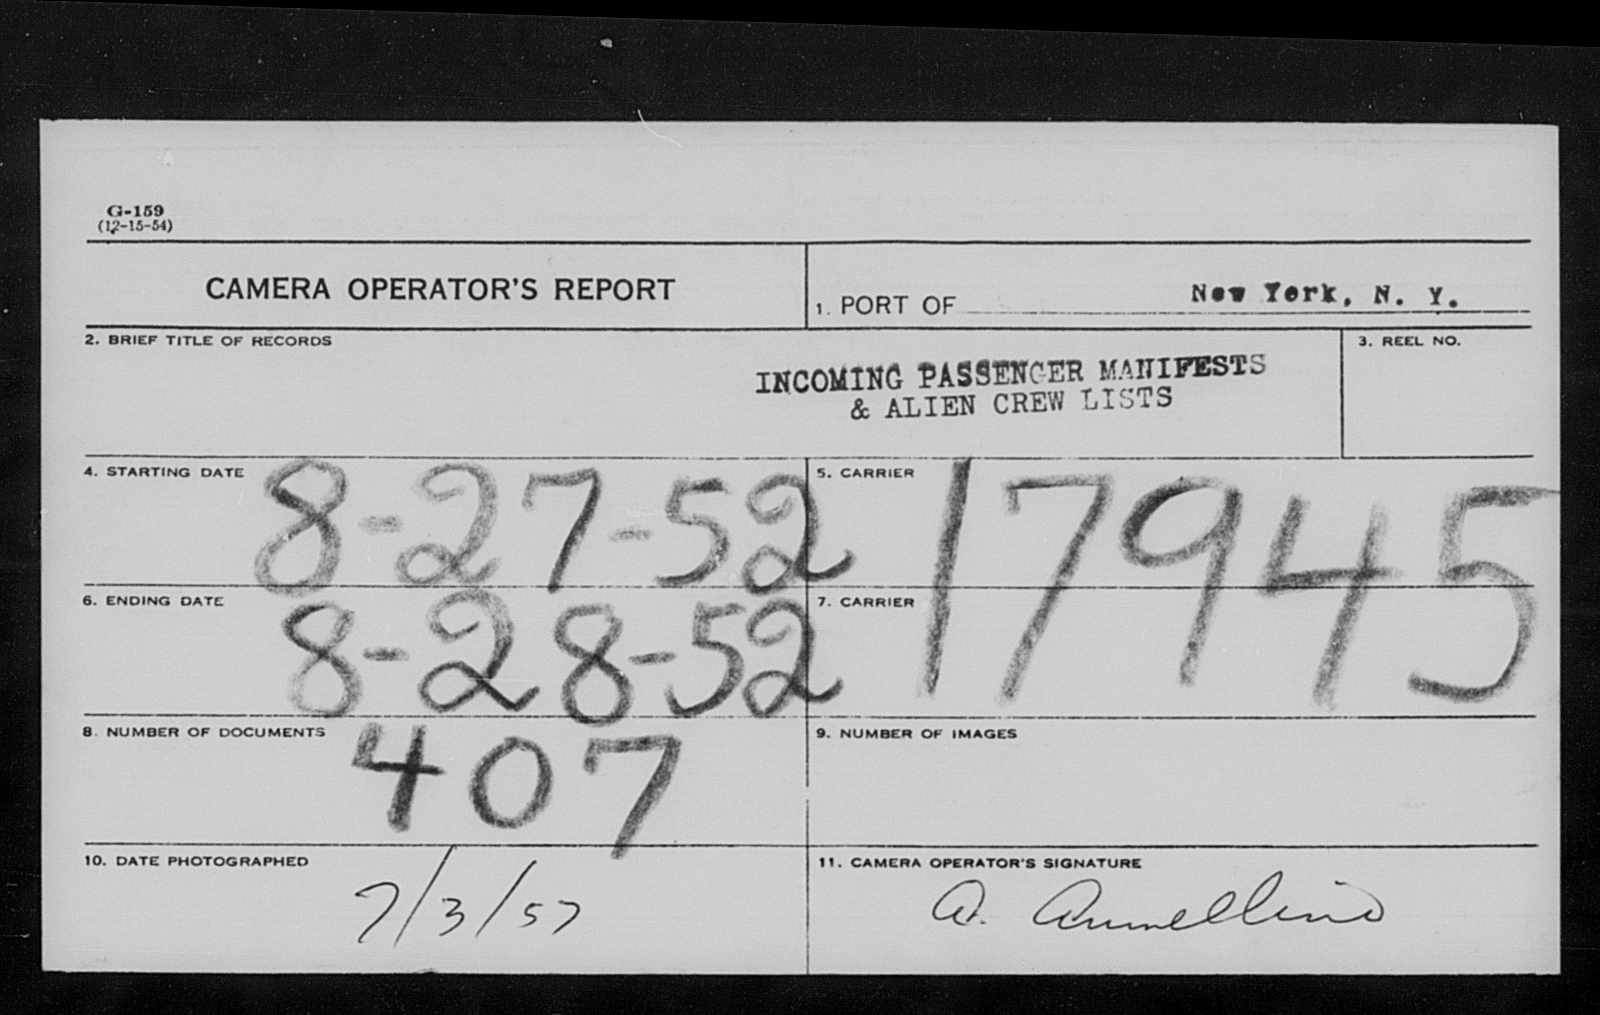 G-159
(12-15-54)
CAMERA OPERATOR'S REPORT
1. PORT OF New York, N. Y.
2. BRIEF TITLE OF RECORDS
INCOMING PASSENGER MANIFESTS
& ALIEN CREW LISTS
3. REEL NO.
4. STARTING DATE 8-27-52
5. CARRIER
17945
6. ENDING DATE 8-28-52
7. CARRIER
8. NUMBER OF DOCUMENTS 407
9. NUMBER OF IMAGES
10. DATE PHOTOGRAPHED
7/3/57
11. CAMERA OPERATOR'S SIGNATURE
A.